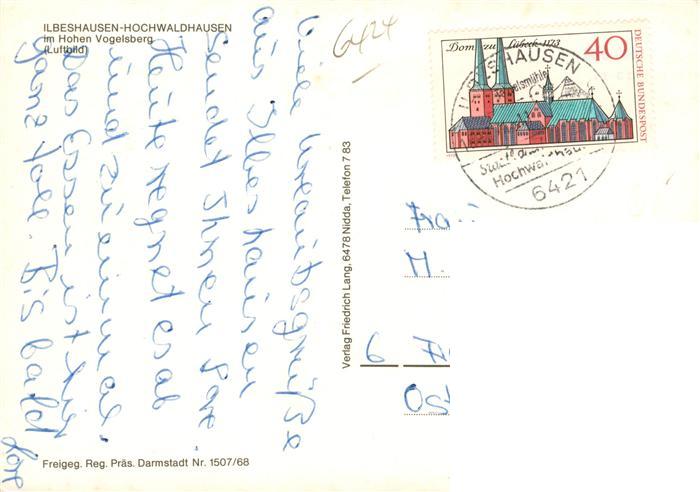 ILBESHAUSEN-HOCHWALDHAUSEN
im Hohen Vogelsberg
(Luftbild)
6424
Viele Urlaubsgrüße
aus Ilbeshausen
sendet Ihnen
Heute regnet es ab
und zu einmal.
Das Essen ist hier
ganz toll. Bis bald
Verlag Friedrich Lang, 6478 Nidda, Telefon 7 83
Freigeg. Reg. Präs. Darmstadt Nr. 1507/68
Dom zu Lübeck 1173
40
DEUTSCHE BUNDESPOST
ILBESHAUSEN
Hochwaldhausen
6421
Fra
H.
6